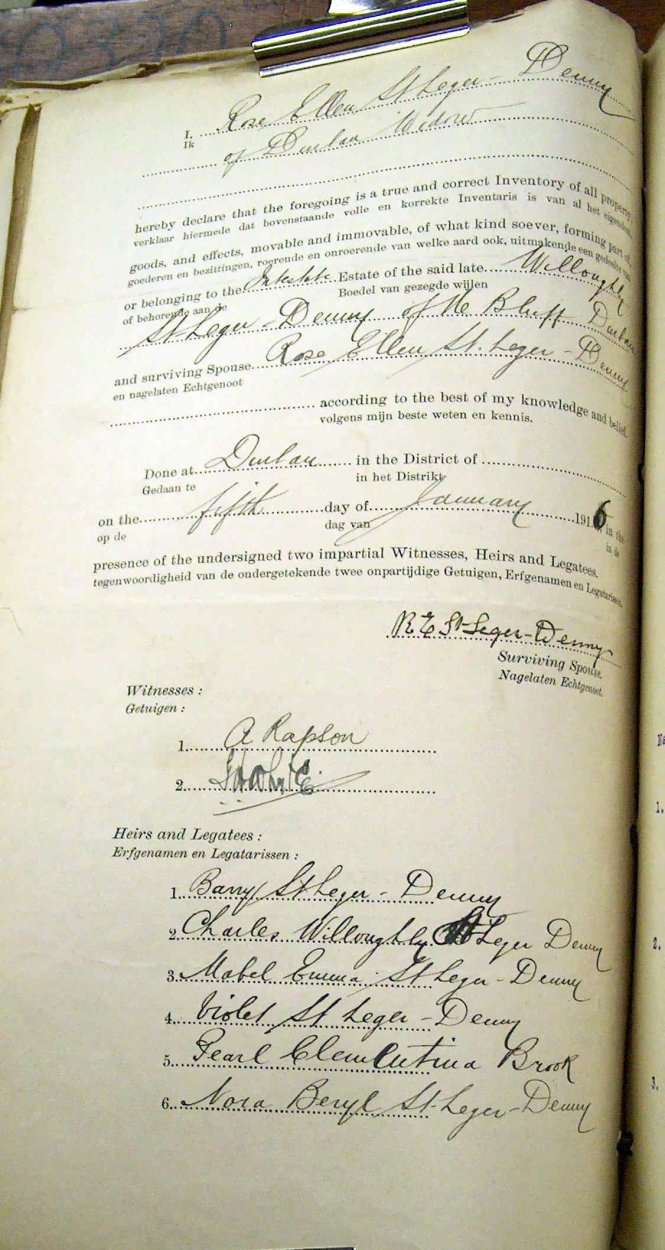 I, Rose Ellen St Leger - Denny
Ik
of Durban Widow
hereby declare that the foregoing is a true and correct Inventory of all property
verklaar hiermede dat bovenstaande volle en korrekte Inventaris is van al het eigendom
goods, and effects, movable and immovable, of what kind soever, forming part of,
goederen en bezittingen, roerende en onroerende van welke aard ook, uitmakende een gedeelte van
or belonging to the Intestate Estate of the said late Willoughby
of behorende aan de Boedel van gezegde wijlen
St. Leger - Denny of the Bluff Durban
and surviving Spouse Rose Ellen St. Leger - Denny
en nagelaten Echtgenoot
according to the best of my knowledge and belief.
volgens mijn beste weten en kennis.
Done at Durban in the District of
Gedaan te in het Distrikt
on the fifth day of January 1916 in the
op de dag van in de
presence of the undersigned two impartial Witnesses, Heirs and Legatees.
tegenwoordigheid van de ondergetekende twee onpartijdige Getuigen, Erfgenamen en Legatarissen.
R E St Leger - Denny
Surviving Spouse.
Nagelaten Echtgenoot.
Witnesses :
Getuigen :
1. A Rapson
2.
Heirs and Legatees :
Erfgenamen en Legatarissen :
1. Barry St Leger - Denny
2. Charles Willoughby St Leger Denny
3. Mabel Emma St Leger - Denny
4. Violet St Leger - Denny
5. Pearl Clementina Brook
6. Nora Beryl St Leger - Denny
1.
2.
3.